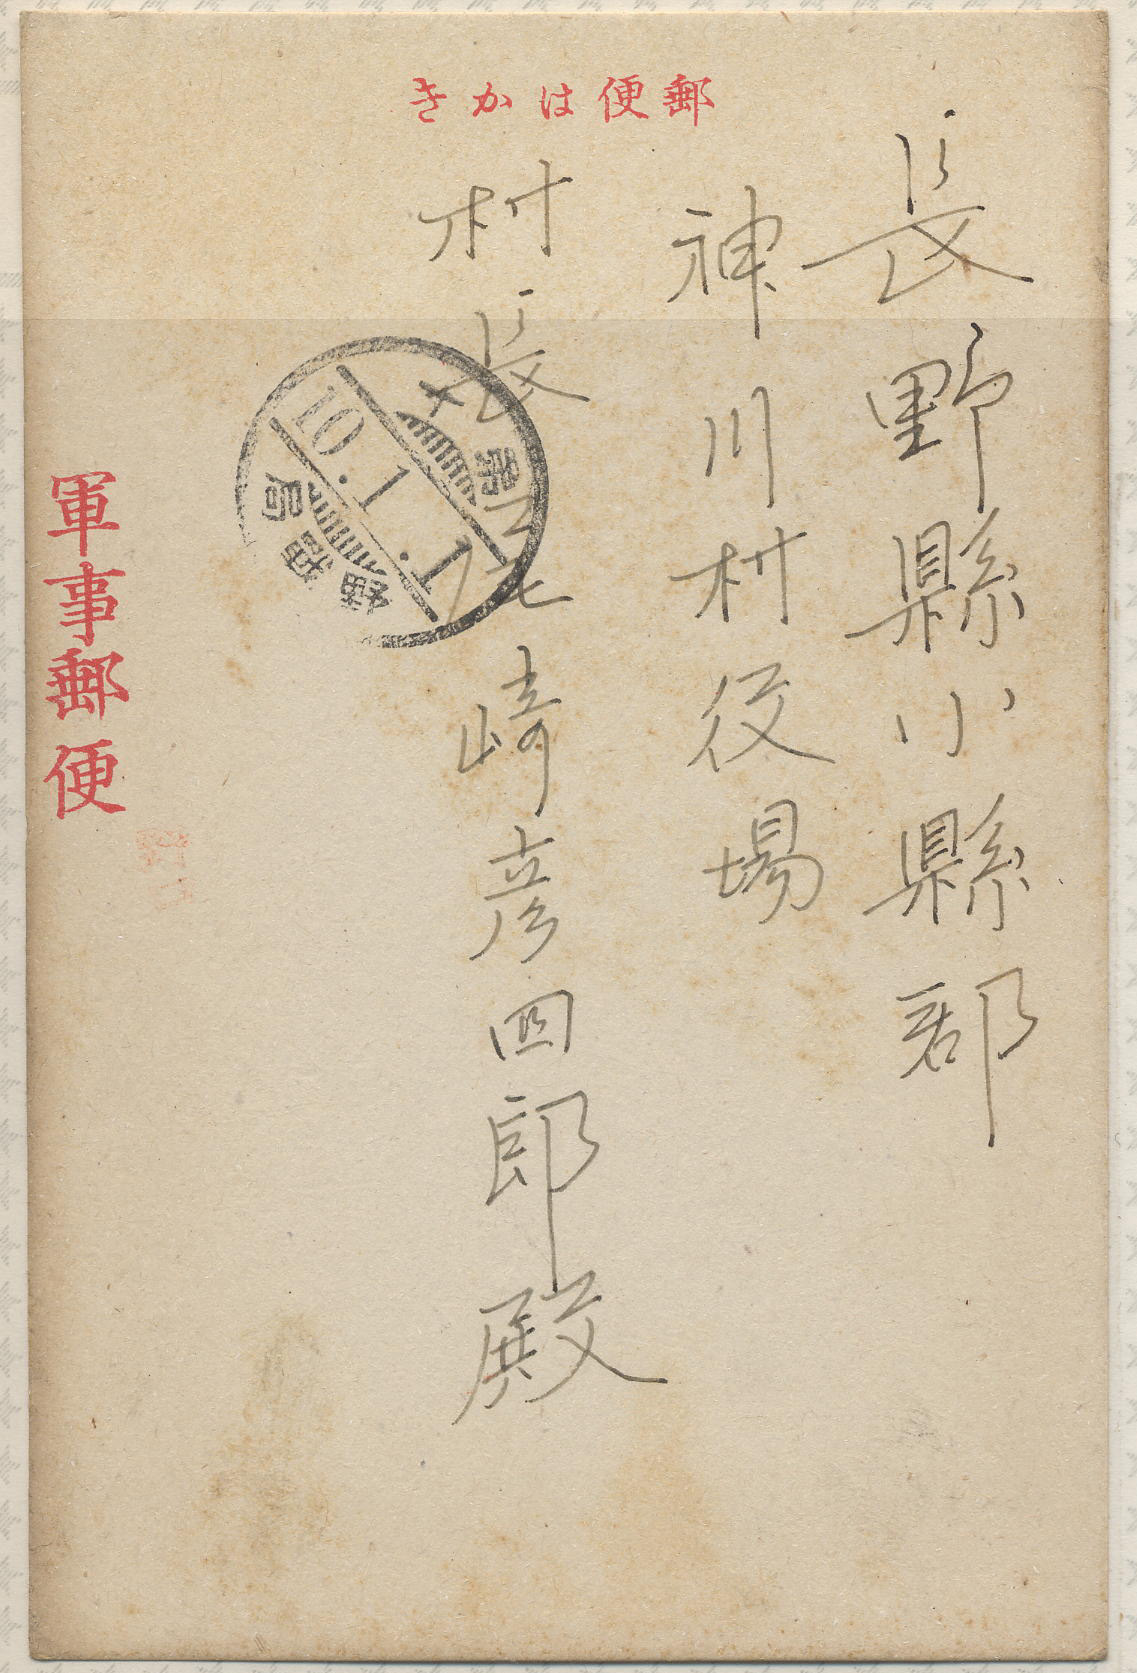 郵便はかき
長野縣小縣郡
神川村役場
村長尾崎彦四郎殿
軍事郵便
10.1.1
局